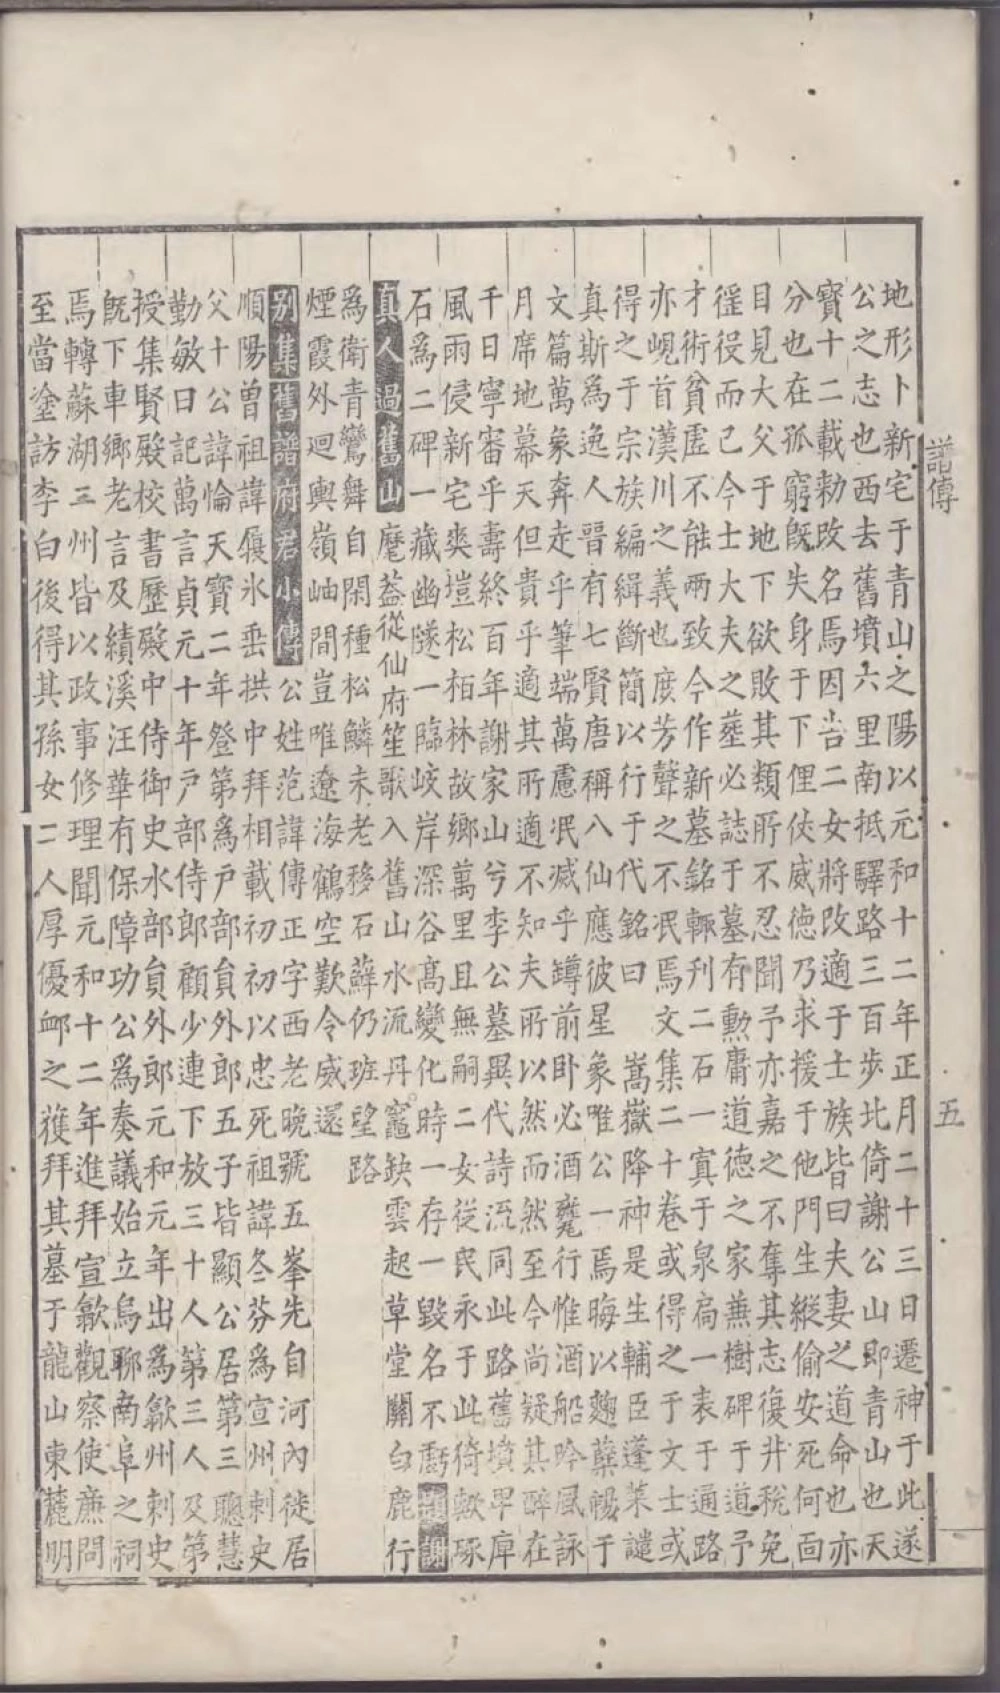 譜傳
五
地形卜新宅于青山之陽以元和十二年正月二十三日遷神于此遂
公之志也西去舊墳六里南抵驛路三百步北倚謝公山即青山也天
寳十二載勑改名焉因告二女將改適于士族皆曰夫妻之道命也亦
分也在孤窮旣失身于下俚仗威德乃求援于他門生縱偷安死何面
目見大父于地下欲敗其類所不忍聞予亦嘉之不奪其志復井稅免
徭役而已今士大夫之葬必誌于墓有勳庸道德之家兼樹碑于道予
才術貧虛不能兩致今作新墓銘輒刊二石一寘于泉扃一表于通路
亦峴首漢川之義也庻芳聲之不泯焉文集二十卷或得之于文士或
得之于宗族編緝斷簡以行于代銘曰 嵩嶽降神是生輔臣蓬萊譴
真斯爲逸人晉有七賢唐稱八仙應彼星象唯公一焉晦以麴櫱暢于
文篇萬象奔走乎筆端萬慮泯滅乎罇前卧必酒甕行惟酒船吟風詠
月席地幕天但貴乎適其所適不知夫所以然而然至今尚疑其醉在
千日寧審乎壽終百年謝家山兮李公墓異代詩流同此路舊墳卑庳
風雨侵新宅爽塏松栢林故鄉萬里且無嗣二女從民永于此猗歟琢
石爲二碑一藏幽隧一臨岐岸深谷高變化時一存一毀名不虧題謝
真人過舊山 麾葢從仙府笙歌入舊山水流丹竈缺雲起草堂關白鹿行
爲衛青鸞舞自閑種松鱗未老移石蘚仍班望路
煙霞外迴輿嶺岫間豈唯遼海鶴空歎令威還
别集舊譜府君小傳 公姓范諱傳正字西老晚號五峯先自河內徙居
順陽曾祖諱履氷垂拱中拜相載初初以忠死祖諱冬芬爲宣州刺史
父十公諱愉天寶二年登第爲户部員外郎五子皆顯公居第三聰慧
勤敏日記萬言貞元十年户部侍郎顧少連下放三十人第三人及第
授集賢殿校書歷殿中侍御史水部員外郎元和元年出爲歙州刺史
旣下車鄉老言及績溪汪華有保障功公爲奏議始立烏聊南阜之祠
焉轉蘇湖三州皆以政事修理聞元和十二年進拜宣歙觀察使廉問
至當塗訪李白後得其孫女二人厚優邺之獲拜其墓于龍山東麓明